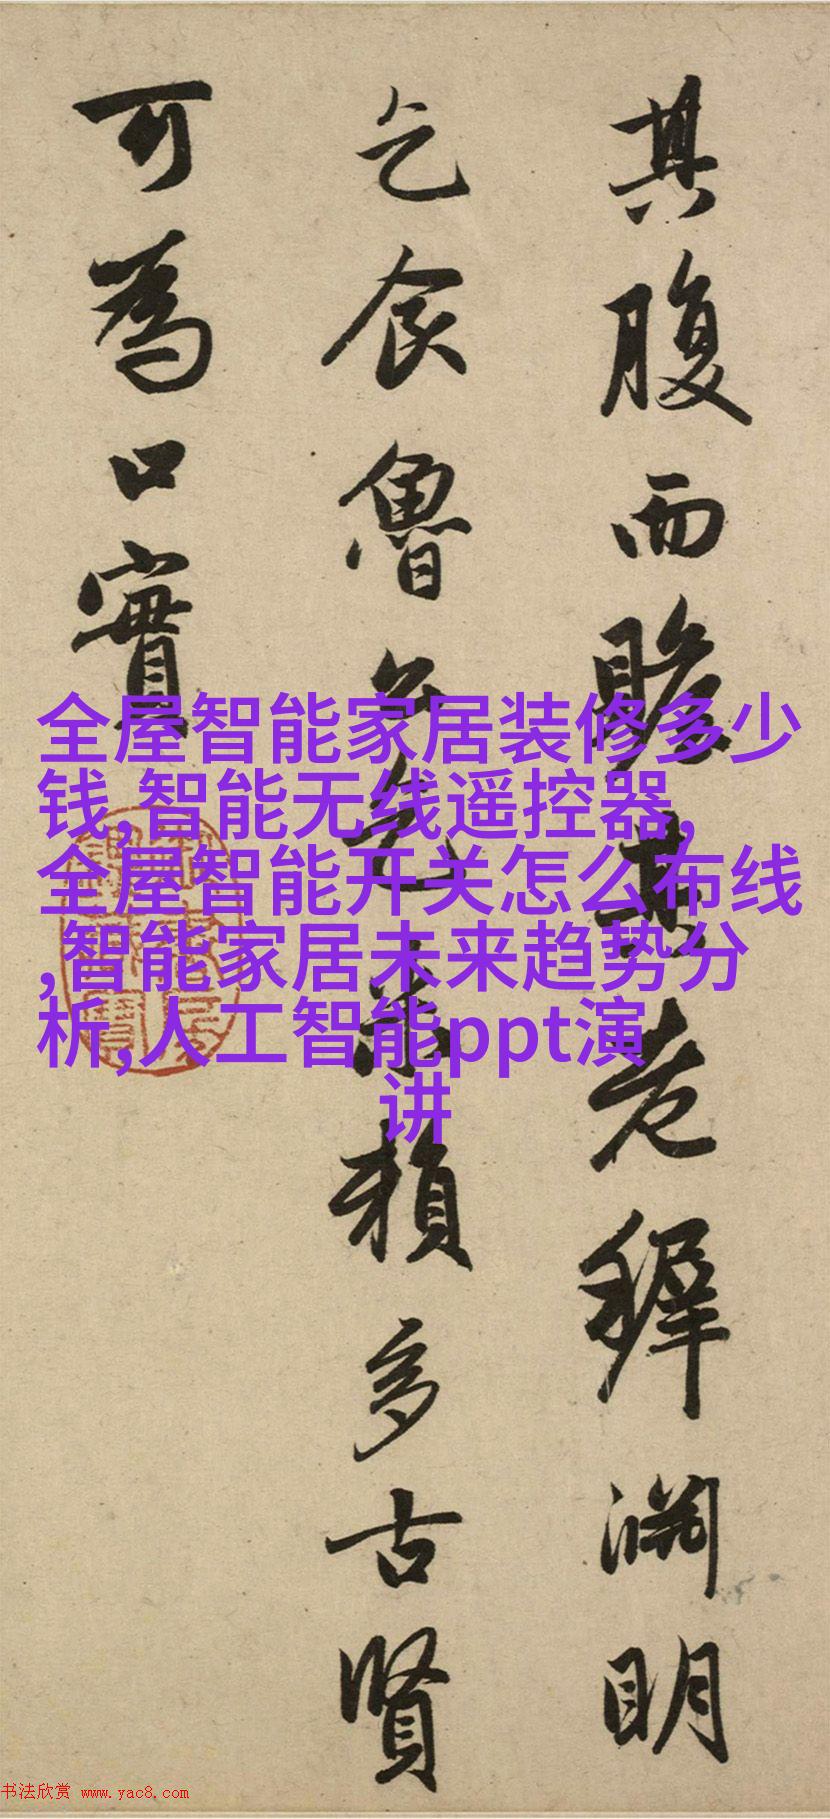 其腹而瞻其老穉淵明
乞食魯公乞米賴多古賢
可為口實
全屋智能家居装修多少
钱,智能无线遥控器,
全屋智能开关怎么布线
,智能家居未来趋势分
析,人工智能ppt演
讲
书法欣赏 www.yac8.com